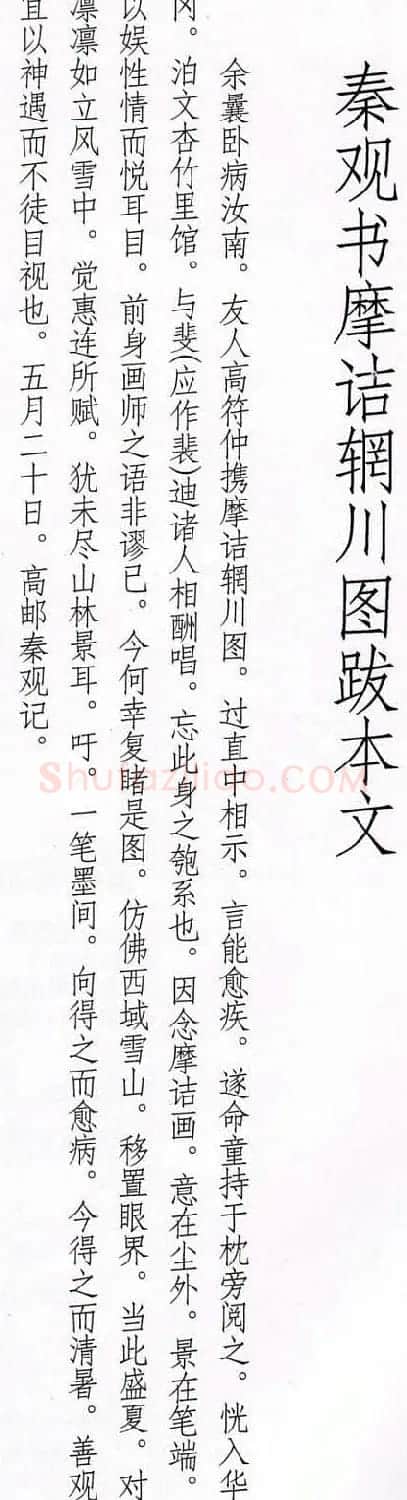 秦观书摩诘辋川图跋本文
余曩卧病汝南。友人高符仲携摩诘辋川图。过直中相示。言能愈疾。遂命童持于枕旁阅之。恍入华
冈。泊文杏竹里馆。与斐(应作裴)迪诸人相酬唱。忘此身之匏系也。因念摩诘画。意在尘外。景在笔端。
以娱性情而悦耳目。前身画师之语非谬已。今何幸复睹是图。仿佛西域雪山。移置眼界。当此盛夏。对
凛凛如立风雪中。觉惠连所赋。犹未尽山林景耳。吁。一笔墨间。向得之而愈病。今得之而清暑。善观
宜以神遇而不徒目视也。五月二十日。高邮秦观记。
Shufaziliao.COM